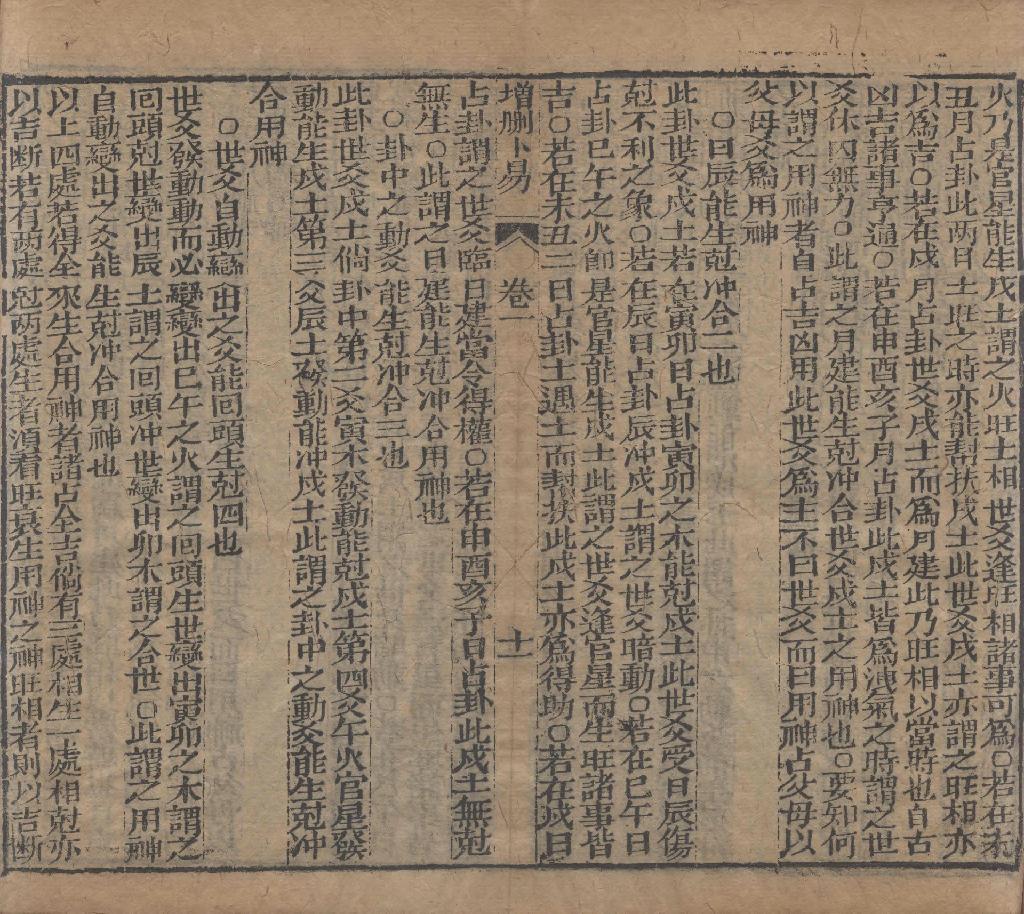 火乃是官星能生戊土謂之火旺土相世爻逢旺相諸事可為〇若在未
丑月占卦此两日土旺之時亦能幫扶戌土此世爻戌土亦謂之旺相亦
以為吉〇若在戌月占卦世爻戌土而為月建此乃旺相以當時也自古
凶吉諸事亨通〇若在申酉亥子月占卦此戌土皆為洩氣之時謂之世
爻休囚無力〇此謂之月建能生尅冲合世爻戌土之用神也〇要知何
以謂之用神者自占吉凶用此世爻為主不曰世爻而曰用神占父母以
父母爻為用神
〇日辰能生尅冲合二也
此卦世爻戌土若在寅卯日占卦寅卯之木能尅戌土此世爻受日辰傷
尅不利之象〇若在辰日占卦辰冲戌土謂之世爻暗動〇若在巳午日
占卦巳午之火即是官星能生戌土此謂之世爻逢官星而生旺諸事皆
吉〇若在未丑二日占卦土遇土而封扶此戌土亦為得助〇若在戌日
增刪卜易 卷一 十一
占卦謂之世爻臨日建當令得權〇若在申酉亥子日占卦此戌土無尅
無生〇此謂之日建能生尅冲合用神也
〇卦中之動爻能生尅冲合三也
此卦世爻戌土倘卦中第二爻寅木發動能尅戌土第四爻午火官星發
動能生戌土第三爻辰土發動能冲戌土此謂之卦中之動爻能生尅冲
合用神
〇世爻自動變出之爻能回頭生尅四也
世爻發動動而必變變出巳午之火謂之回頭生世變出寅卯之木謂之
回頭尅世變出辰土謂之回頭冲世變出卯木謂之合世〇此謂之用神
自動變出之爻能生尅冲合用神也
以上四處若得全來生合用神者諸占全吉倘有三處相生一處相尅亦
以吉断若有两處尅两處生者須看旺衰生用神之神旺相者則以吉断